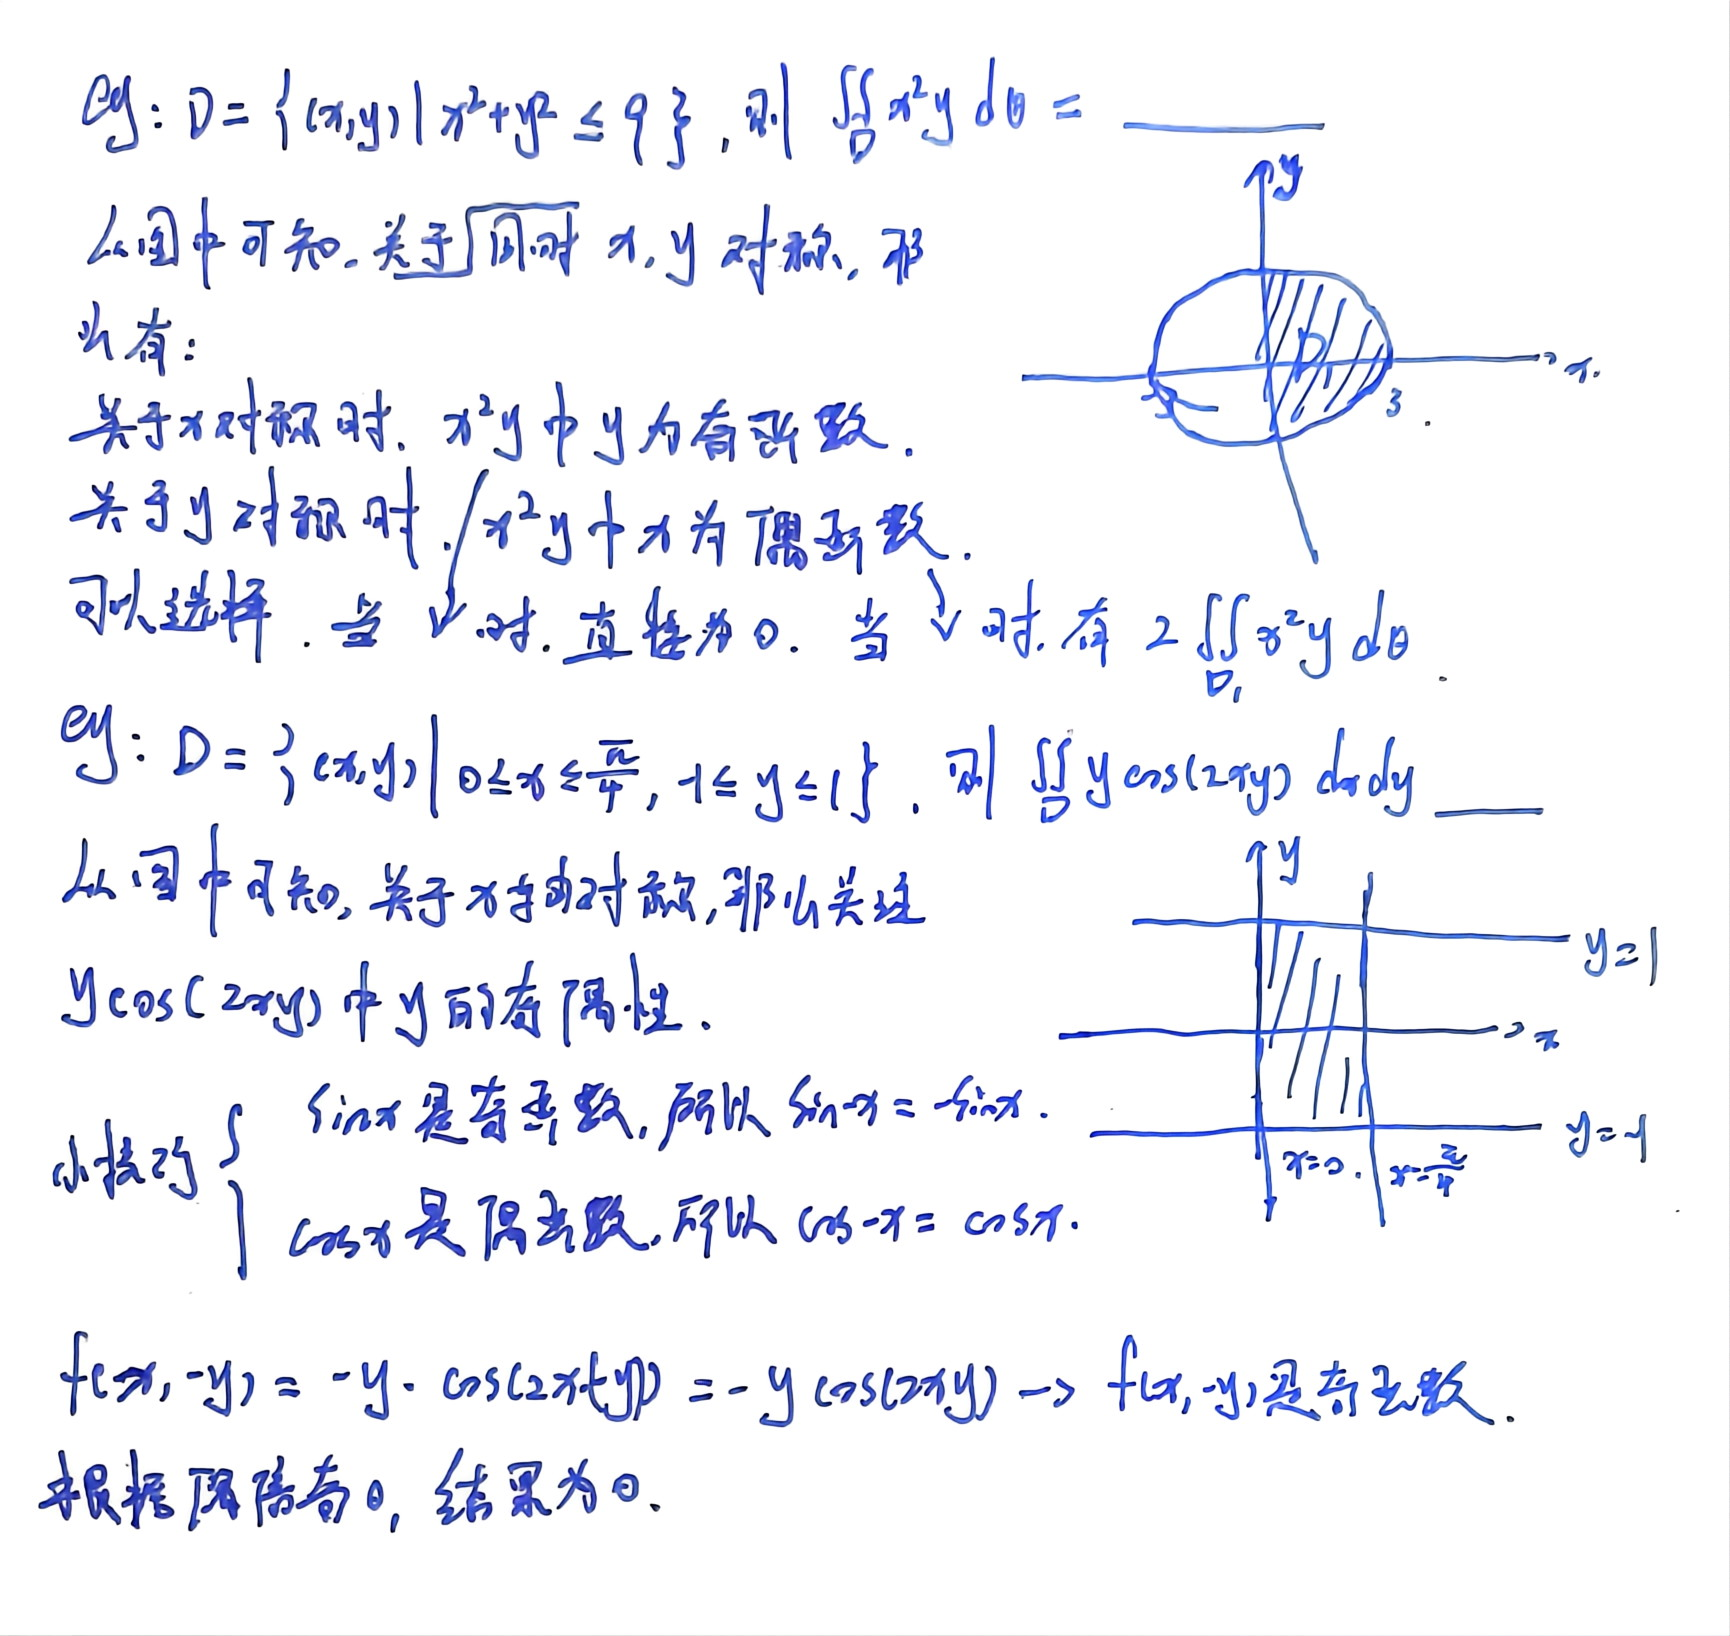 eg: D = {(x,y) | x²+y² ≤ 9}, 则 ∬_D x²y dθ = ____
从图中可知. 关于同时 x, y 对称, 那
么有:
关于x对称时. x²y 中 y 为奇函数.
关于y对称时. x²y 中 x 为偶函数.
可以选择. 当 ↓ 时. 直接为0. 当 ↓ 时. 有 2∬_D₁ x²y dθ.
y
D
x.
-3
3
eg: D = {(x,y) | 0≤x≤π/4, -1≤y≤1}. 则 ∬_D y cos(2xy) dxdy ____
从图中可知, 关于x方向对称, 那么关注
y cos(2xy) 中 y 的奇偶性.
y
y=1
x
y=-1
x=0.
x=π/4
小技巧 { sinx 是奇函数, 所以 sin-x = -sinx.
cosx 是偶函数, 所以 cos-x = cosx.
f(x,-y) = -y·cos(2x(-y)) = -y cos(2xy) → f(x,-y)是奇函数.
根据偶倍奇0, 结果为0.